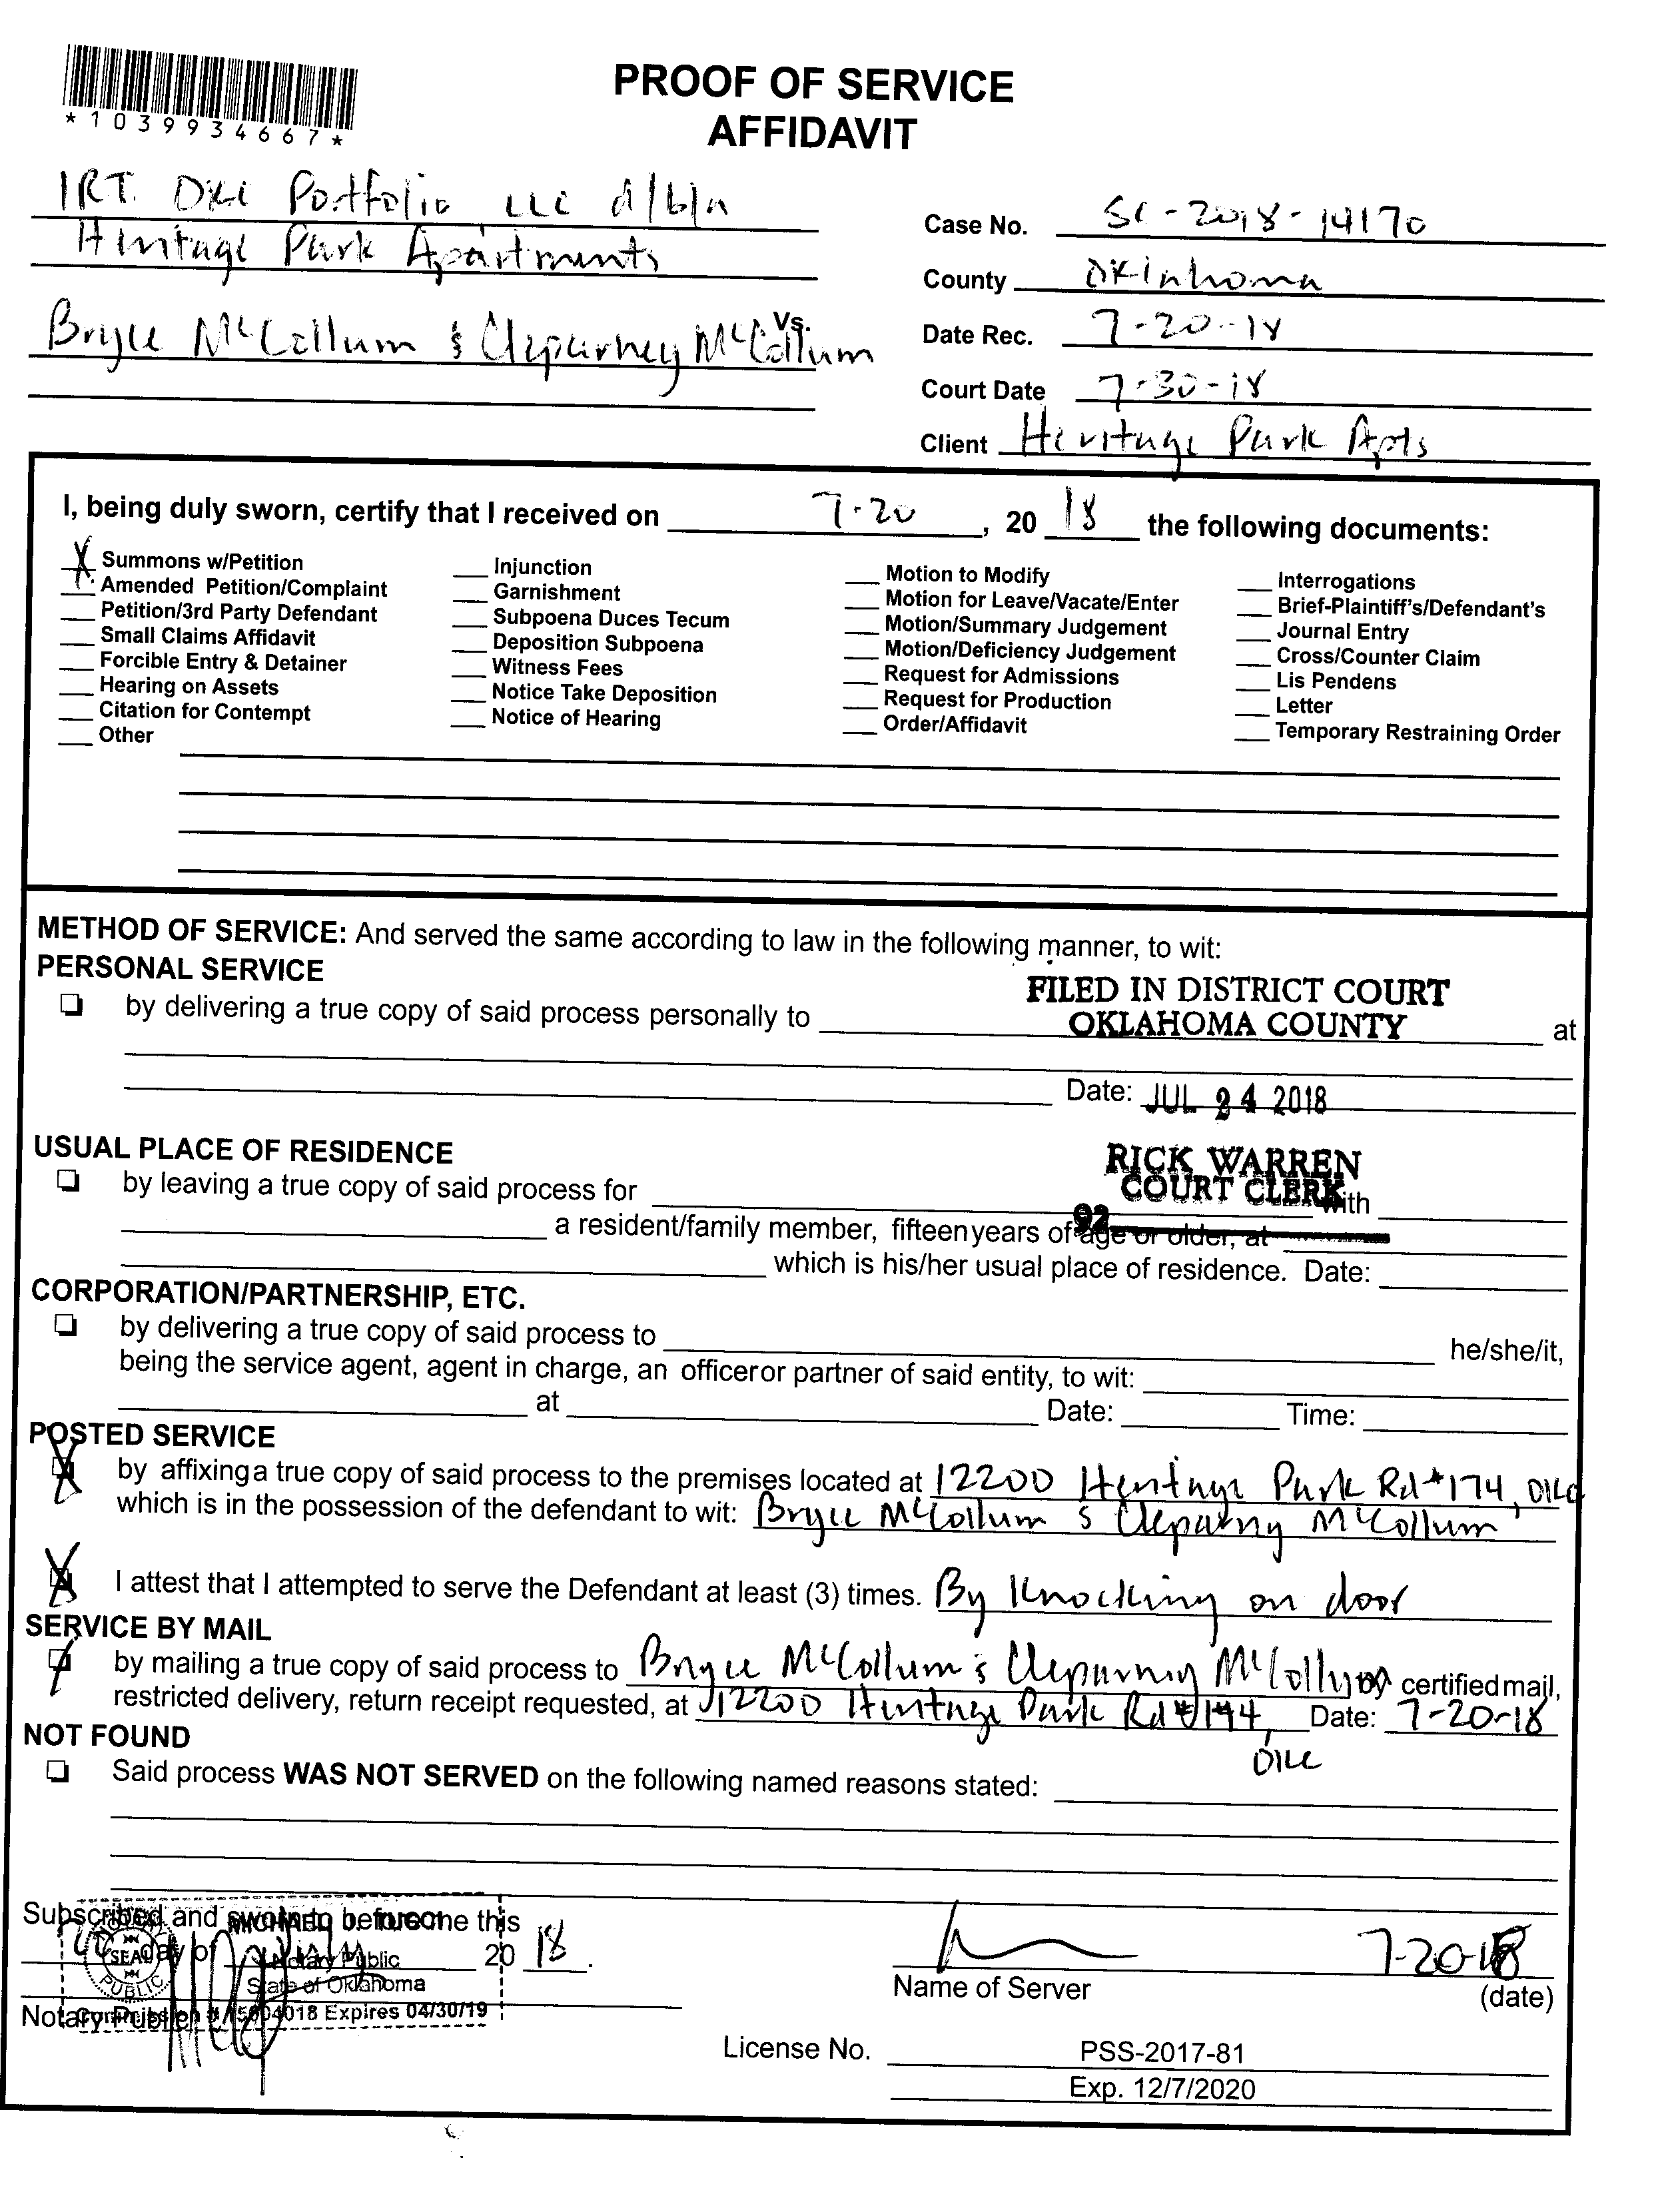 *1039934667*
PROOF OF SERVICE
AFFIDAVIT
IRT. OKC Portfolio LLC d/b/a
Heritage Park Apartments
Vs.
Bryce McCollum & Cleparney McCollum
Case No. SC-2018-14170
County Oklahoma
Date Rec. 7-20-18
Court Date 7-30-18
Client Heritage Park Apts
I, being duly sworn, certify that I received on 7-20, 20 18 the following documents:
X Summons w/Petition
Amended Petition/Complaint
Petition/3rd Party Defendant
Small Claims Affidavit
Forcible Entry & Detainer
Hearing on Assets
Citation for Contempt
Other
Injunction
Garnishment
Subpoena Duces Tecum
Deposition Subpoena
Witness Fees
Notice Take Deposition
Notice of Hearing
Motion to Modify
Motion for Leave/Vacate/Enter
Motion/Summary Judgement
Motion/Deficiency Judgement
Request for Admissions
Request for Production
Order/Affidavit
Interrogations
Brief-Plaintiff's/Defendant's
Journal Entry
Cross/Counter Claim
Lis Pendens
Letter
Temporary Restraining Order
METHOD OF SERVICE: And served the same according to law in the following manner, to wit:
PERSONAL SERVICE
FILED IN DISTRICT COURT
OKLAHOMA COUNTY
by delivering a true copy of said process personally to at
Date: JUL 24 2018
USUAL PLACE OF RESIDENCE
RICK WARREN
COURT CLERK
by leaving a true copy of said process for with
92
a resident/family member, fifteen years of age or older, at
which is his/her usual place of residence. Date:
CORPORATION/PARTNERSHIP, ETC.
by delivering a true copy of said process to he/she/it,
being the service agent, agent in charge, an officer or partner of said entity, to wit:
at Date: Time:
POSTED SERVICE
X by affixing a true copy of said process to the premises located at 12200 Heritage Park Rd #174, OKC
which is in the possession of the defendant to wit: Bryce McCollum & Cleparny McCollum
X I attest that I attempted to serve the Defendant at least (3) times. By Knocking on door
SERVICE BY MAIL
by mailing a true copy of said process to Bryce McCollum & Cleparney McCollum by certified mail,
restricted delivery, return receipt requested, at 12200 Heritage Park Rd #174, OKC Date: 7-20-18
NOT FOUND
Said process WAS NOT SERVED on the following named reasons stated:
Subscribed and sworn to before me this
day of July 20 18.
Notary Public
MICHAEL J.
SEAL
PUBLIC
Notary Public
State of Oklahoma
Commission # 15004018 Expires 04/30/19
7-20-18
Name of Server (date)
License No. PSS-2017-81
Exp. 12/7/2020